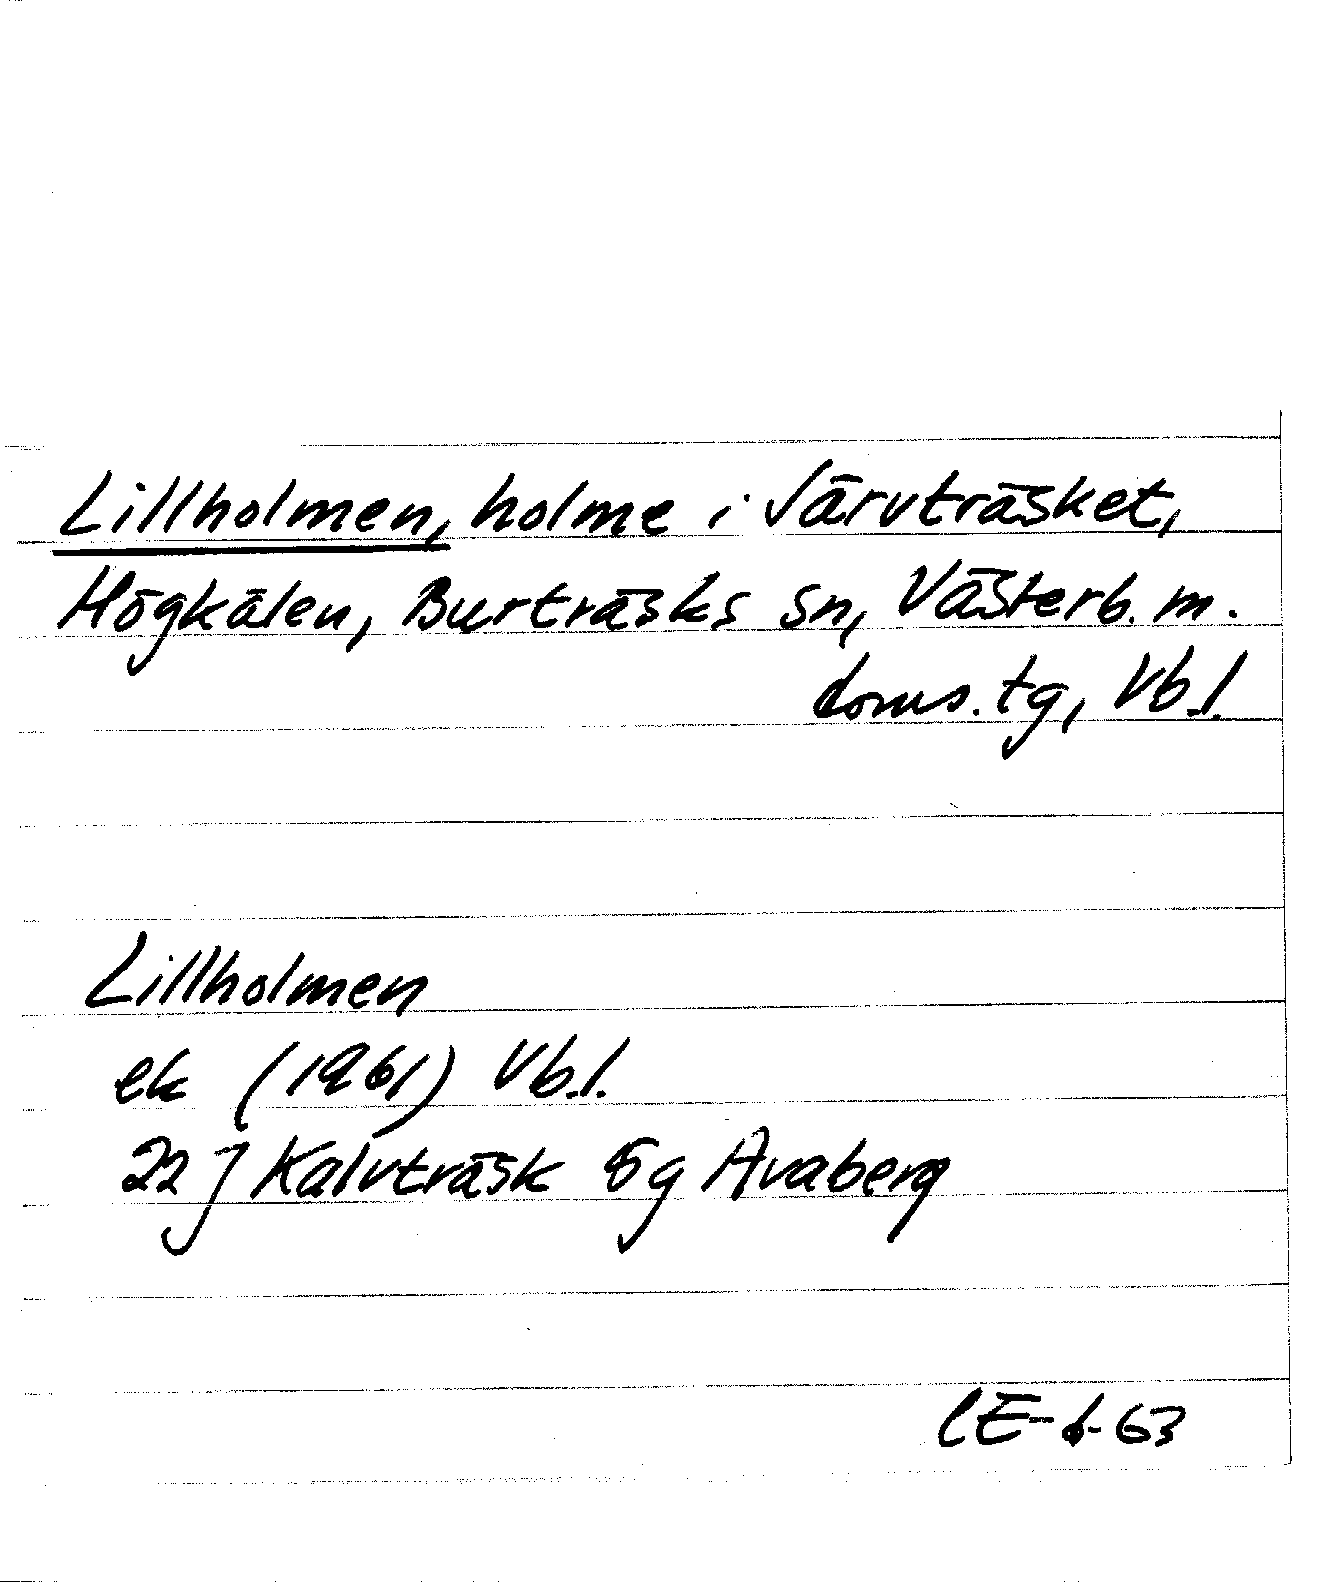 Lillholmen, holme i Järvträsket,
Högkälen, Burträsks sn, Västerb. m.
doms. tg, Vb.l.
Lillholmen
ek (1961) Vb.l.
22 J Kalvträsk 5g Avaberg
CE-6-63